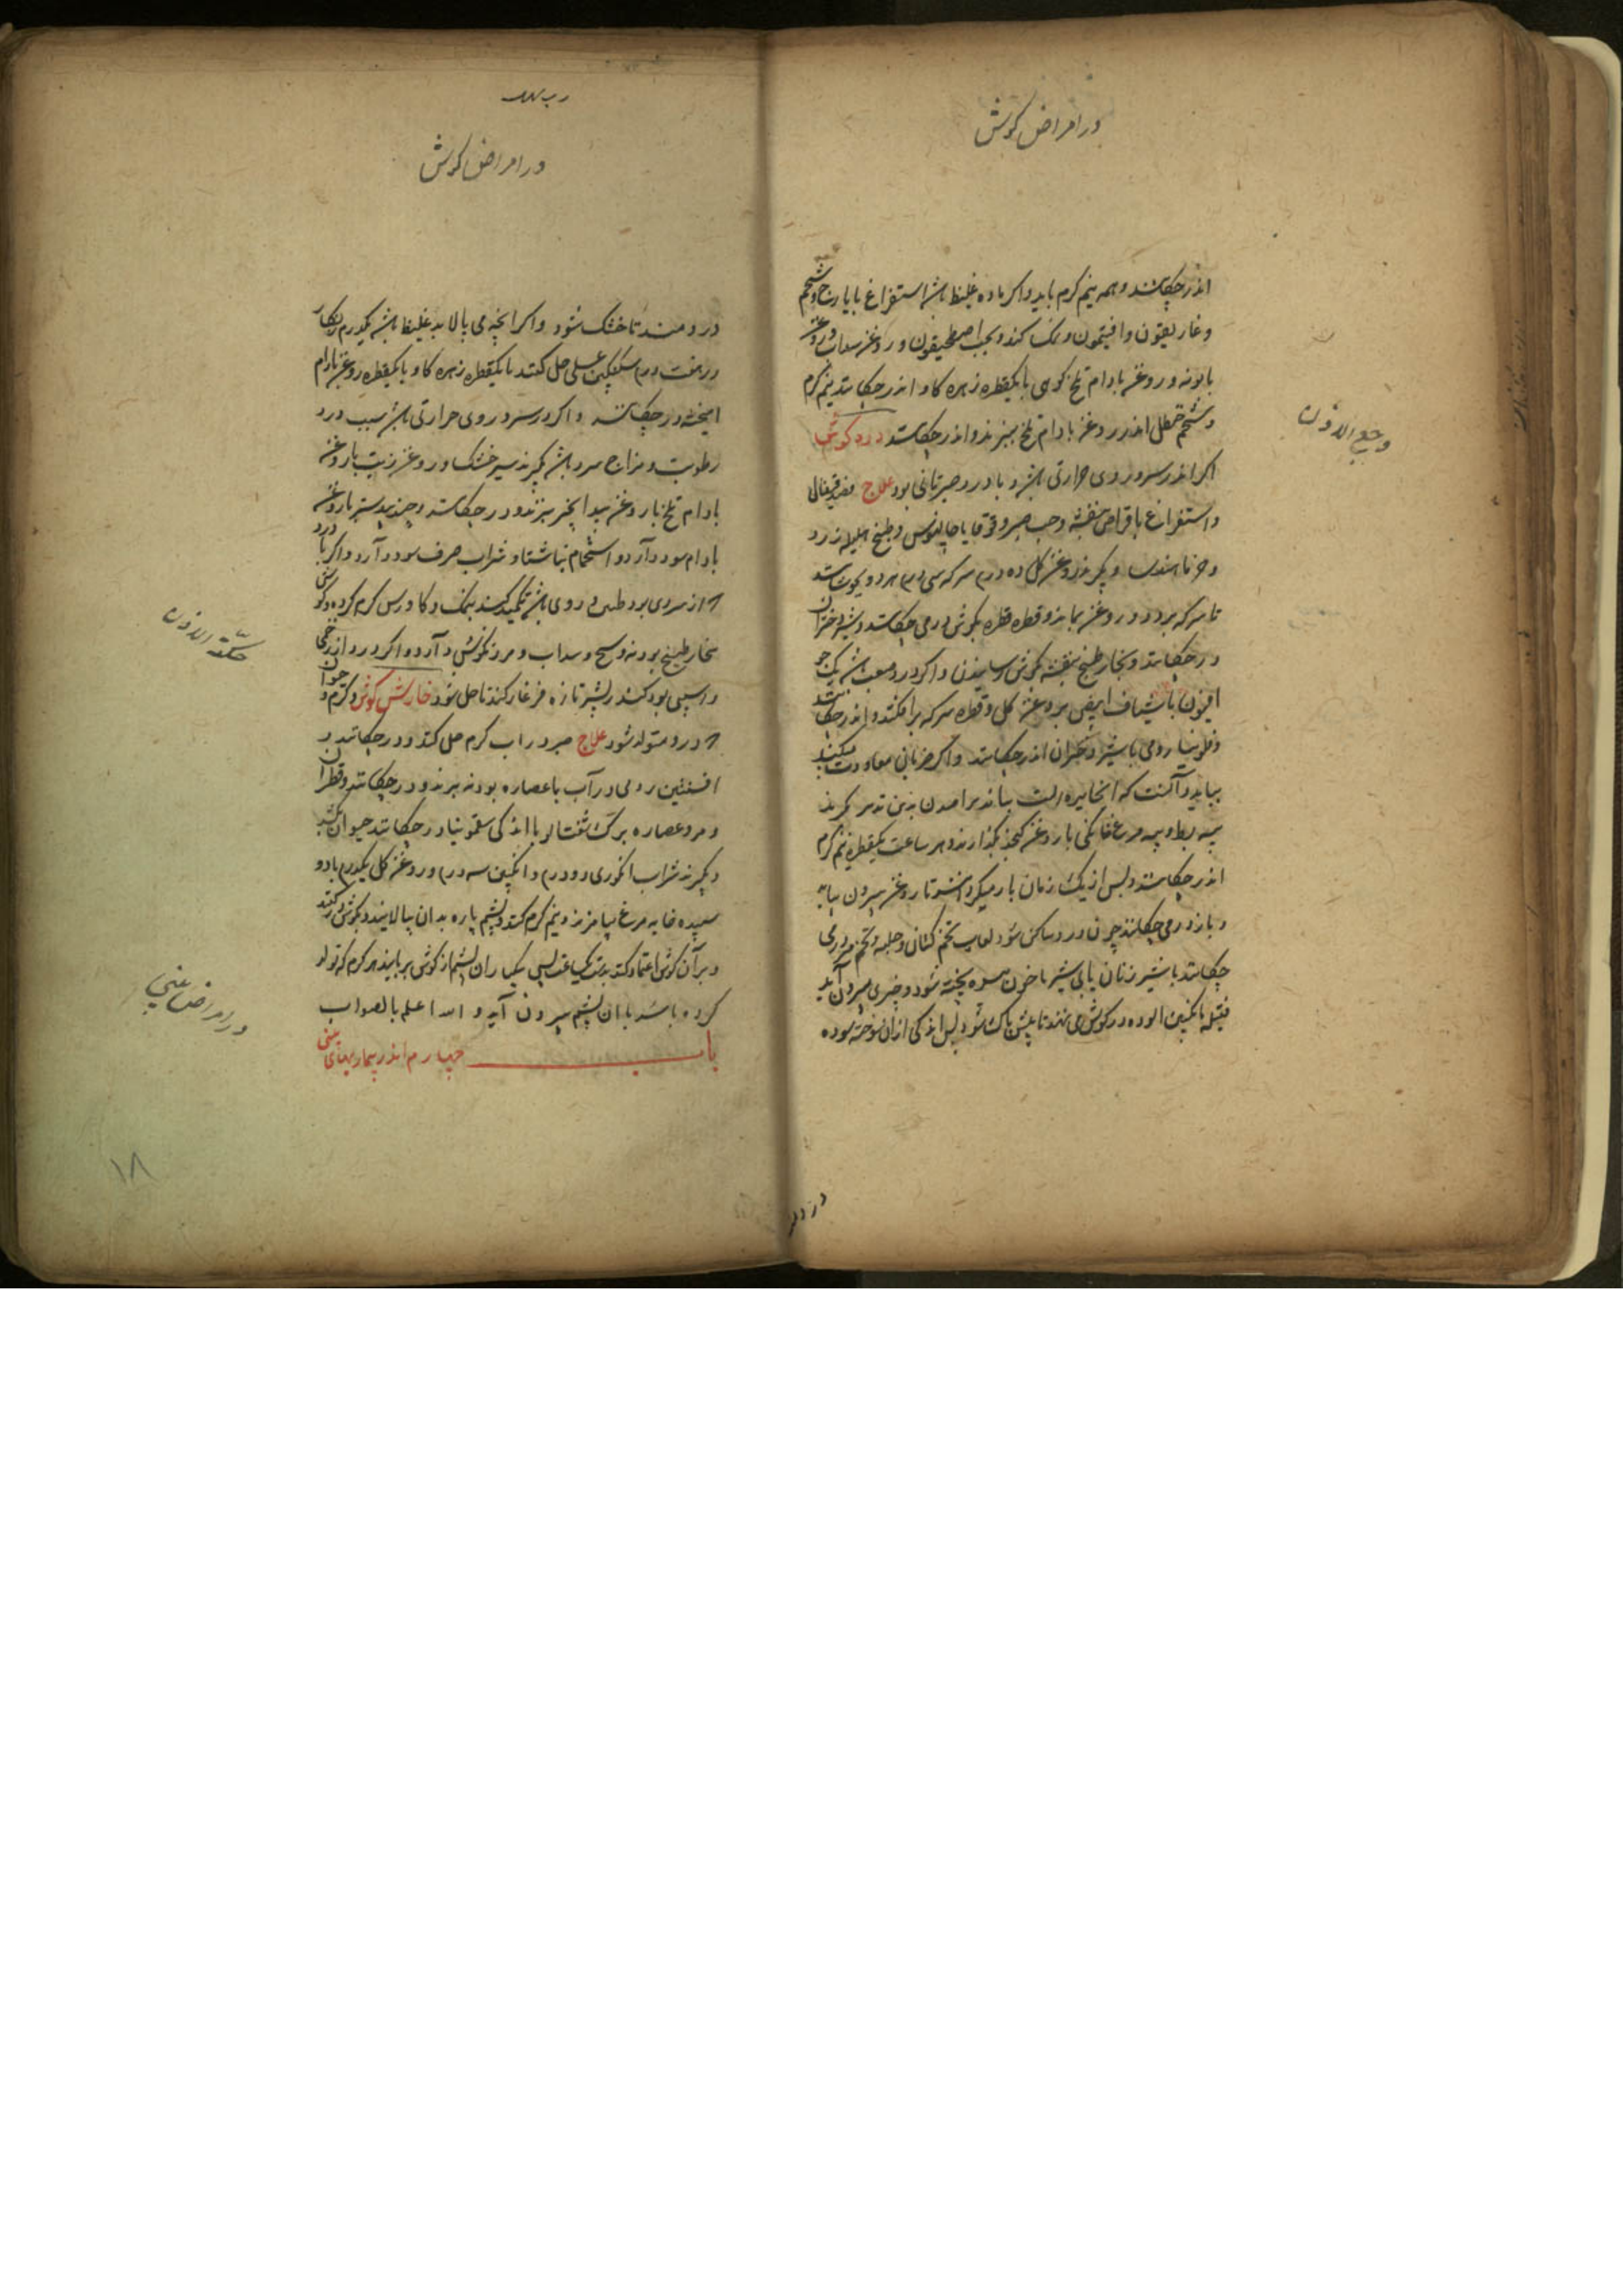 در امراض گوش
اندر چکانند و همه نیم گرم باید و اگر ماده غلیظ باشد استفراغ بایارج و شحم
و غاریقون و افتیمون و نمک کنند و بحب اصطمخیقون و روغن سداب و روغن
بابونه و روغن بادام تلخ کوهی با یکقطره زهره گاو اندر چکانند نیم گرم
و شحم حنظل اندر روغن بادام تلخ بپزند و اندر چکانند درد گوش
وجع الاذن
اگر اندر سر و روی حرارتی باشد و با درد ضربانی بود علاج فصد قیفال
و استفراغ باقراص بنفشه و حب صبر و قوقایا جالینوس و طبیخ هلیله زرد
و بگیرند روغن گل ده درم سرکه سی درم هر دو بجوشانند
تا سرکه برود و روغن بماند و قطره قطره بگوش در می چکانند و شیر دختران
در چکانند و بخار طبیخ بنفشه بگوش رسانیدن و اگر درد صعب باشد یک جو
افیون با شیاف ابیض بروغن گل و قطره سرکه برافکنند و اندر چکانند
و فلونیا رومی با شیر دختران اندر چکانند و اگر ضربان معاودت میکند
بباید دانست که
پیه بط و پیه مرغ خانگی با روغن کنجد بگدازند و هر ساعت یکقطره نیم گرم
اندر چکانند و پس از یک زمان باز میگردانند تا روغن بیرون بیاید
و باز در می چکانند چون درد ساکن شود لعاب تخم کتان و حلبه و تخم مرو در می
چکانند با شیر زنان یا بی شیر تا خون بسته پخته شود و چیزی بیرون آید
فتیله بانگبین آلوده در گوش می نهند تا پاک شود پس اندکی انزروت سوده
در دمند
در امراض گوش
در دمند تا خشک شود و اگر آنچه می پالاید غلیظ باشد یکدرم زنگار
در هفت درم سکنگبین عسلی حل کنند با یکقطره زهره گاو با یکقطره روغن بادام
آمیخته در چکانند و اگر در سر و روی حرارتی باشد سبب درد
رطوبت و مزاج سرد باشد بگیرند سیر خشک و روغن زیت یا روغن
بادام تلخ یا روغن بیدانجیر بپزند و در چکانند و جندبیدستر با روغن
بادام سود دارد و استحمام ناشتا و شراب صرف سود دارد و اگر با درد
روی باشد تکمید کنند بنمک و گاورس گرم کرده و گوش
بخار طبیخ پودنه و شیح و سداب و مرزنگوش دارد و اگر درد از زخمی
و آسیبی بود کندر بشیر تازه فرغار کنند تا حل شود خارش گوش و کرم و
حکة الاذن
درو متولد شود علاج صبر در آب گرم حل کنند و در چکانند و
افسنتین رومی در آب یا عصاره پودنه بپزند و در چکانند و قطران
و مر و عصاره برگ شفتالو با اندکی سقمونیا در چکانند حیوان بکشد
و بگیرند شراب انگوری دو درم و انگبین سه درم و روغن گل یکدرم با دو
سپیده خایه مرغ بیامیزند و نیم گرم کنند و پشم پاره بدان بیالایند و بگوش در کنند
و بر آن گوش اعتماد کنند یکساعت پس بیکبار آن پشم از گوش بربایند هر کرم که تولد
کرده باشد با آن پشم بیرون آید و الله اعلم بالصواب
باب چهارم اندر بیماریهای بینی
در امراض بینی
۱۸